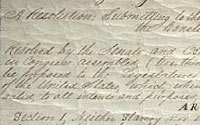 A Resolution; Submitting to the
the Constit
Resolved by the Senate and
in Congress assembled, (two thir
be proposed to the Legislatures
of the United States, which, when
valid, to all intents and purposes
AR
Section 1. Neither slavery nor